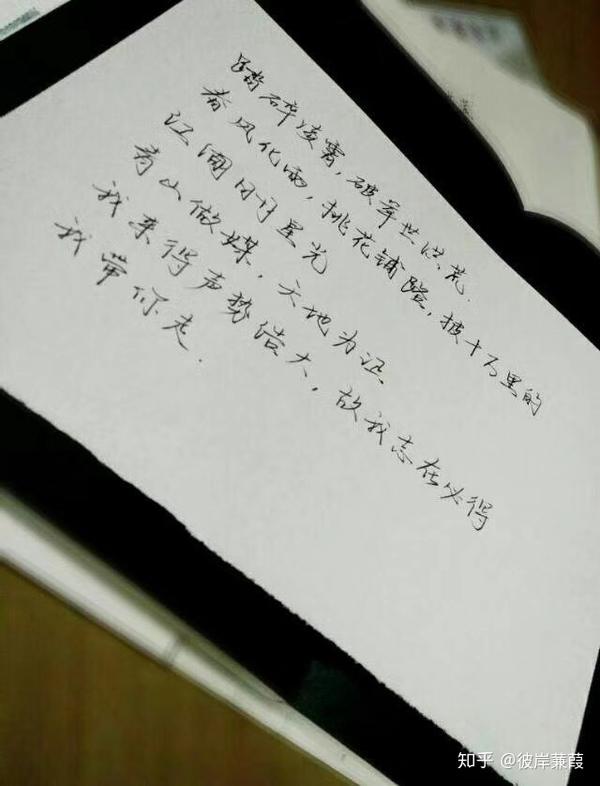 踏碎凌霄，破世洪荒.
春风化雨，桃花铺，披十万里的
江日月星光
青山做媒，天地为证
我来得声势浩大，故我志在必得
我带你走.
知乎 @彼岸蒹葭